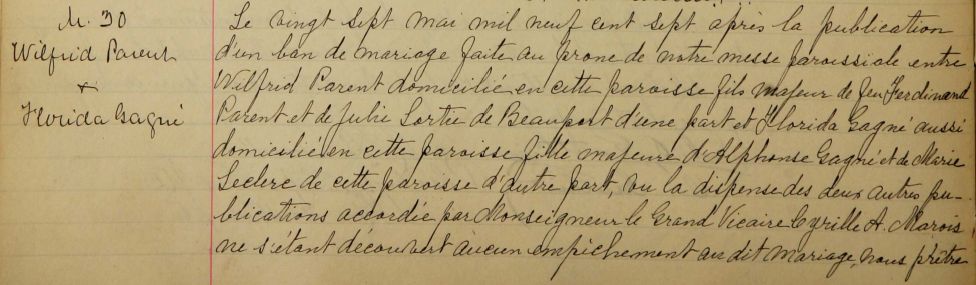 M. 30
Wilfrid Parent
+
Florida Gagné
Le vingt sept mai mil neuf cent sept après la publication
d'un ban de mariage faite au prone de notre messe paroissiale entre
Wilfrid Parent domicilié en cette paroisse fils majeur de feu Ferdinand
Parent et de Julie Sortie de Beauport d'une part et Florida Gagné aussi
domicilié en cette paroisse fille majeure d'Alphonse Gagné et de Marie
Leclerc de cette paroisse d'autre part, vu la dispense des deux autres pu-
blications accordée par Monseigneur le Grand Vicaire Cyrille A. Marois
ne s'étant découvert aucun empêchement au dit mariage, nous prêtre